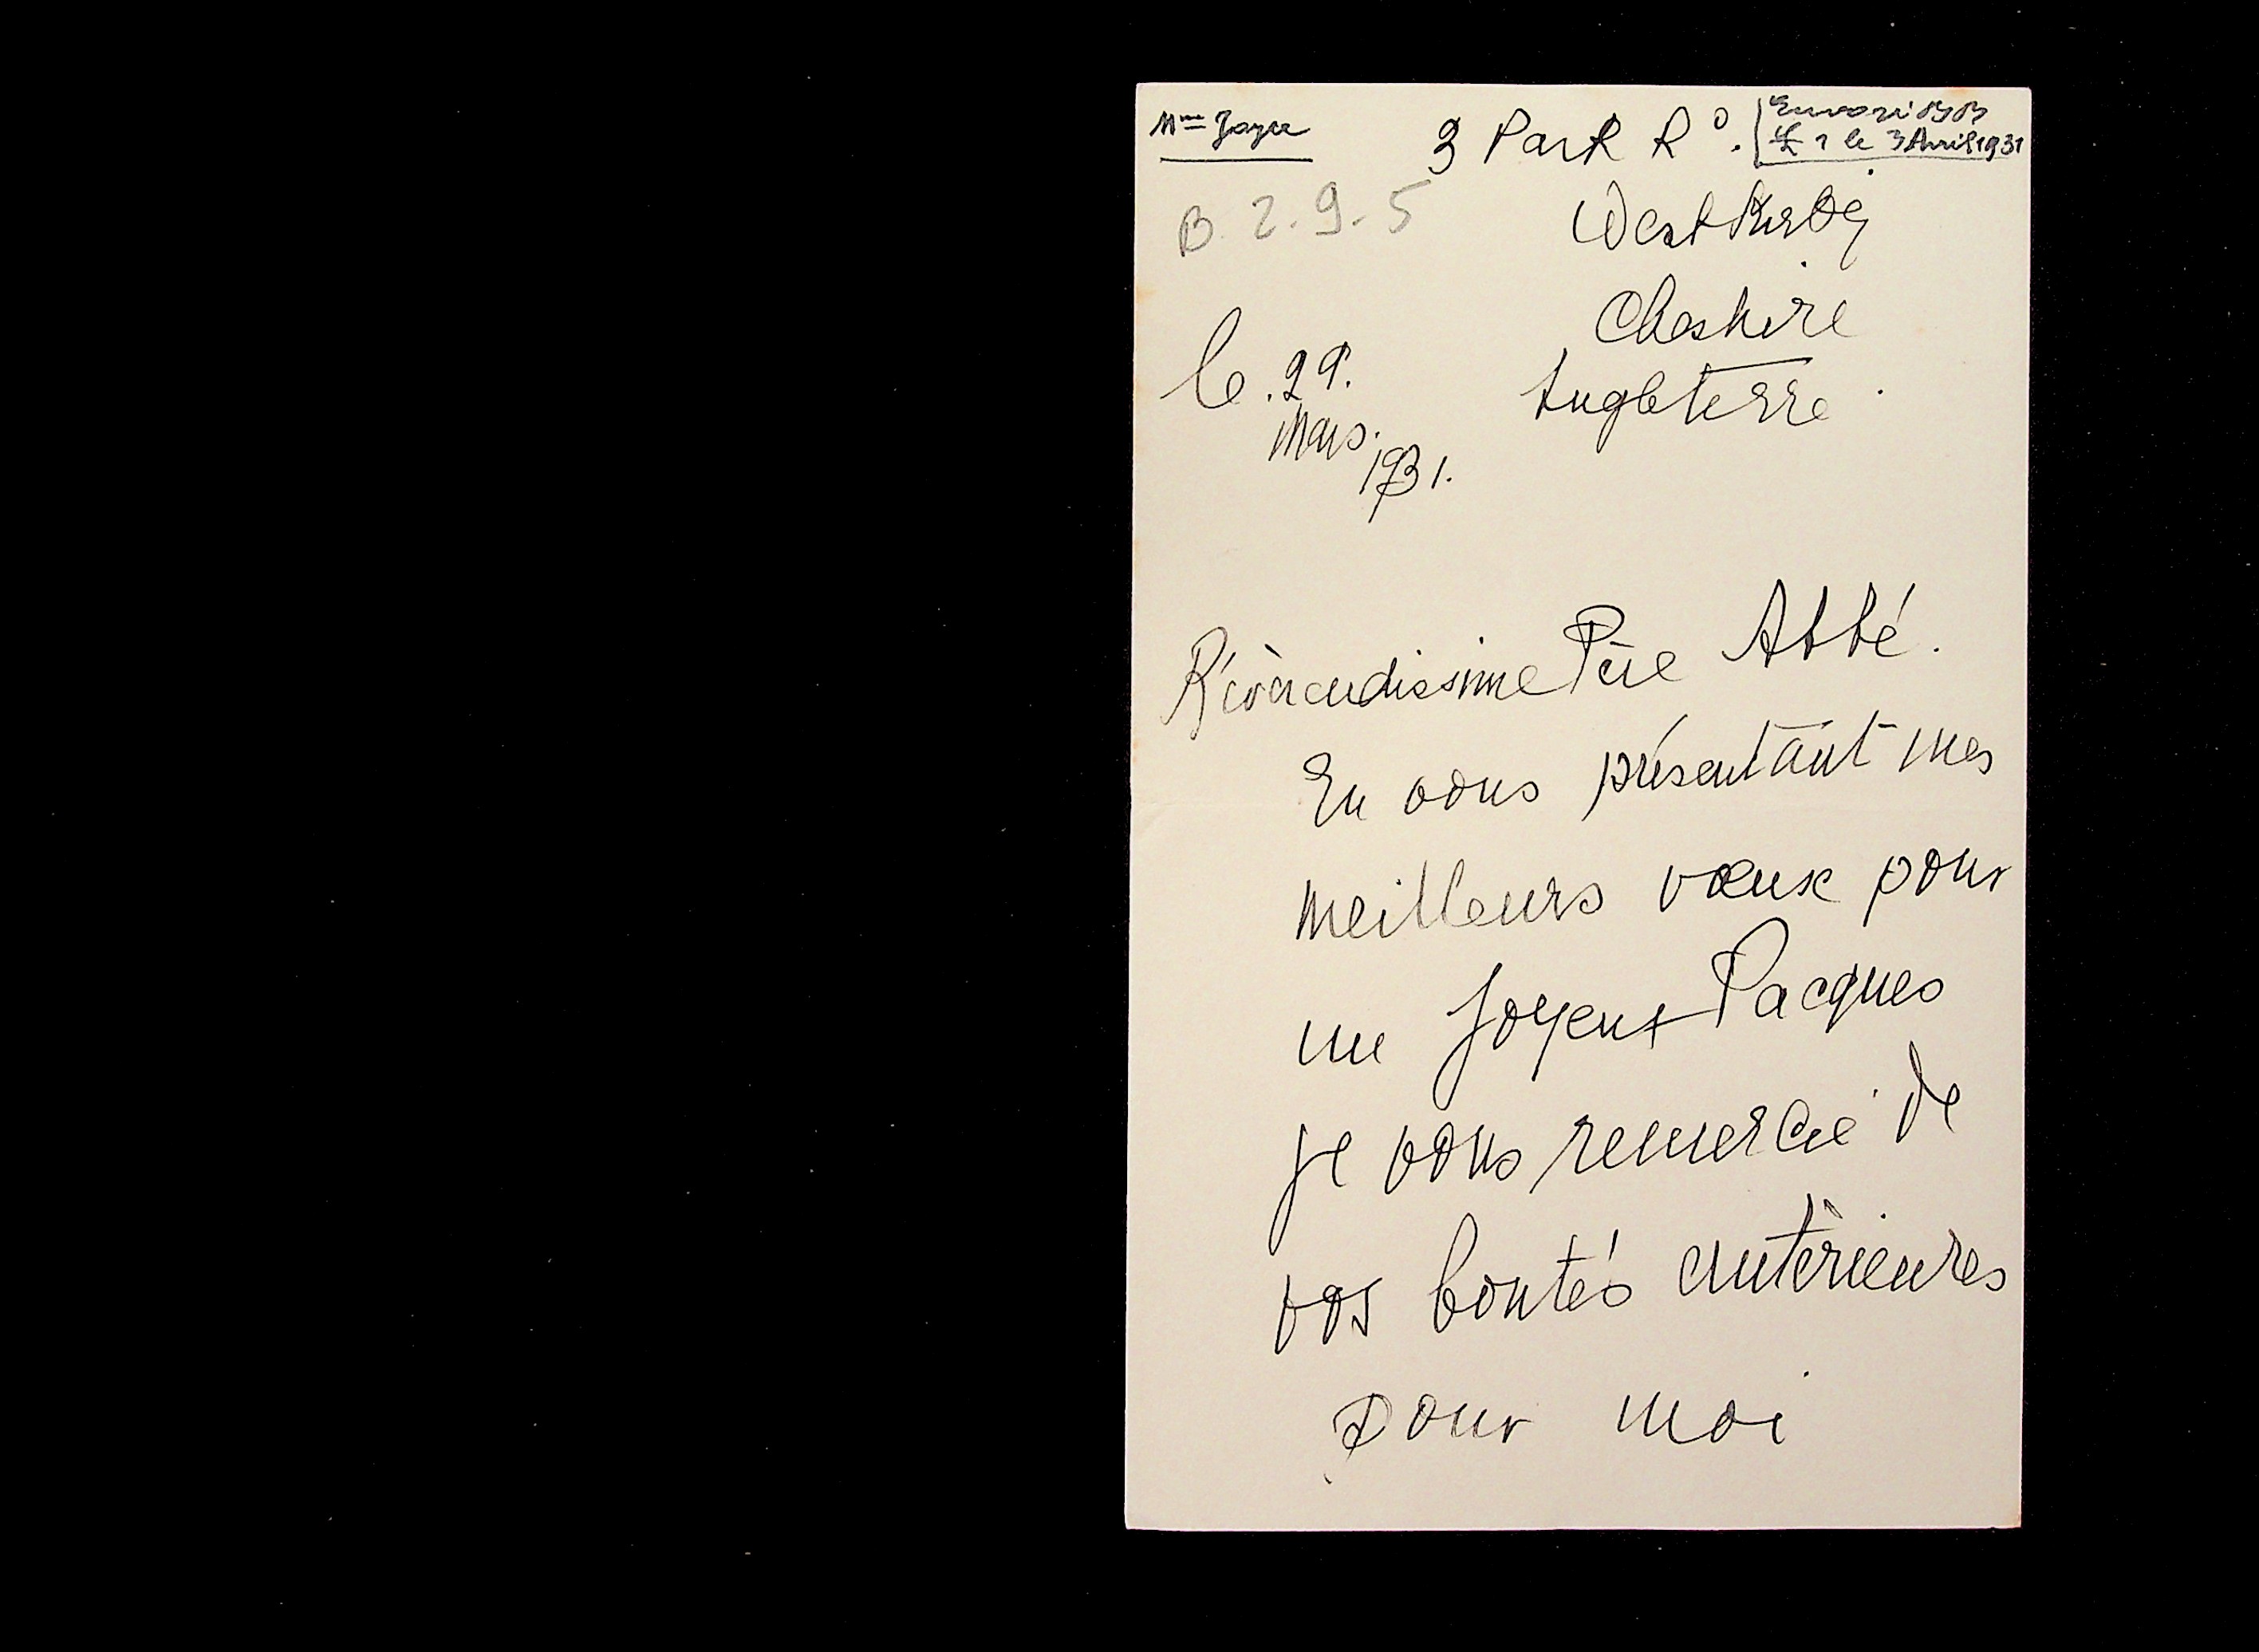 Mme Joyce
3 Park Rd.
£ 1 le 3 Avril 1931
B. 2. 9. 5
West Kirby
Cheshire
Angleterre.
le. 29.
Mars.
1931.
Révèrendissime Père Abbé.
En vous présentant mes
meilleurs vœux pour
un Joyeux Pacques
je vous remercie de
vos bontés antèrieures
pour moi